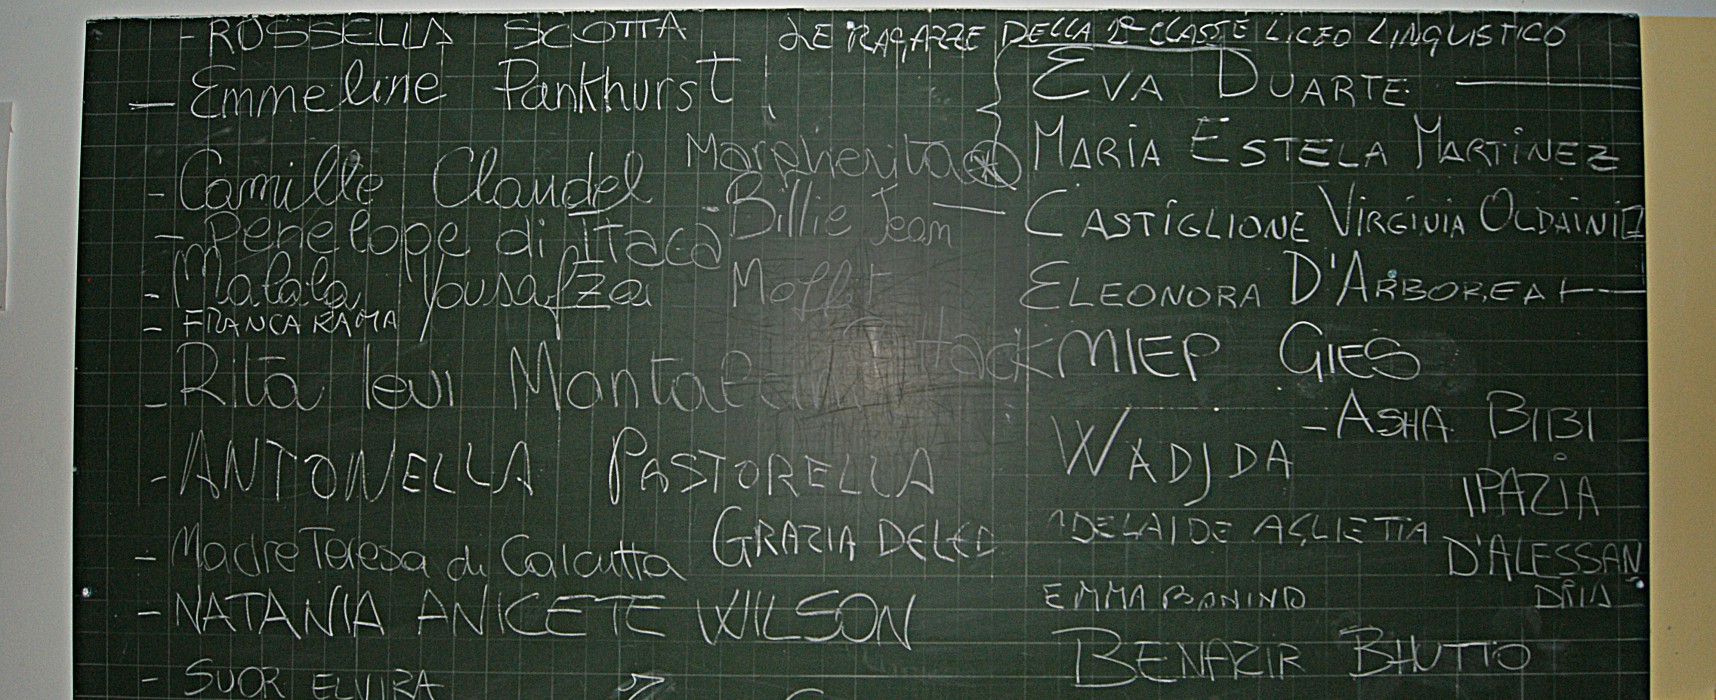 - ROSSELLA SCOTTA
- Emmeline Pankhurst
- Camille Claudel
- Penelope di Itaca
- Malala Yousafzai
- FRANCA RAMA
- Rita levi Montalcini
- ANTONELLA PASTORELLA
- Madre Teresa di Calcutta
- NATANIA ANICETE WILSON
- SUOR ELVIRA
Margherita
Hack
- Billie Jean
Moffit
GRAZIA DELED
LE RAGAZZE DELLA 2ª CLASSE LICEO LINGUISTICO
EVA DUARTE
MARIA ESTELA MARTINEZ
CASTIGLIONE VIRGINIA OLDAINI
ELEONORA D'ARBOREA
MIEP GIES
- ASHA BIBI
WADJDA
IPAZIA
D'ALESSAN
DRIA
ADELAIDE AGLIETTA
EMMA BONINO
BENAZIR BHUTTO